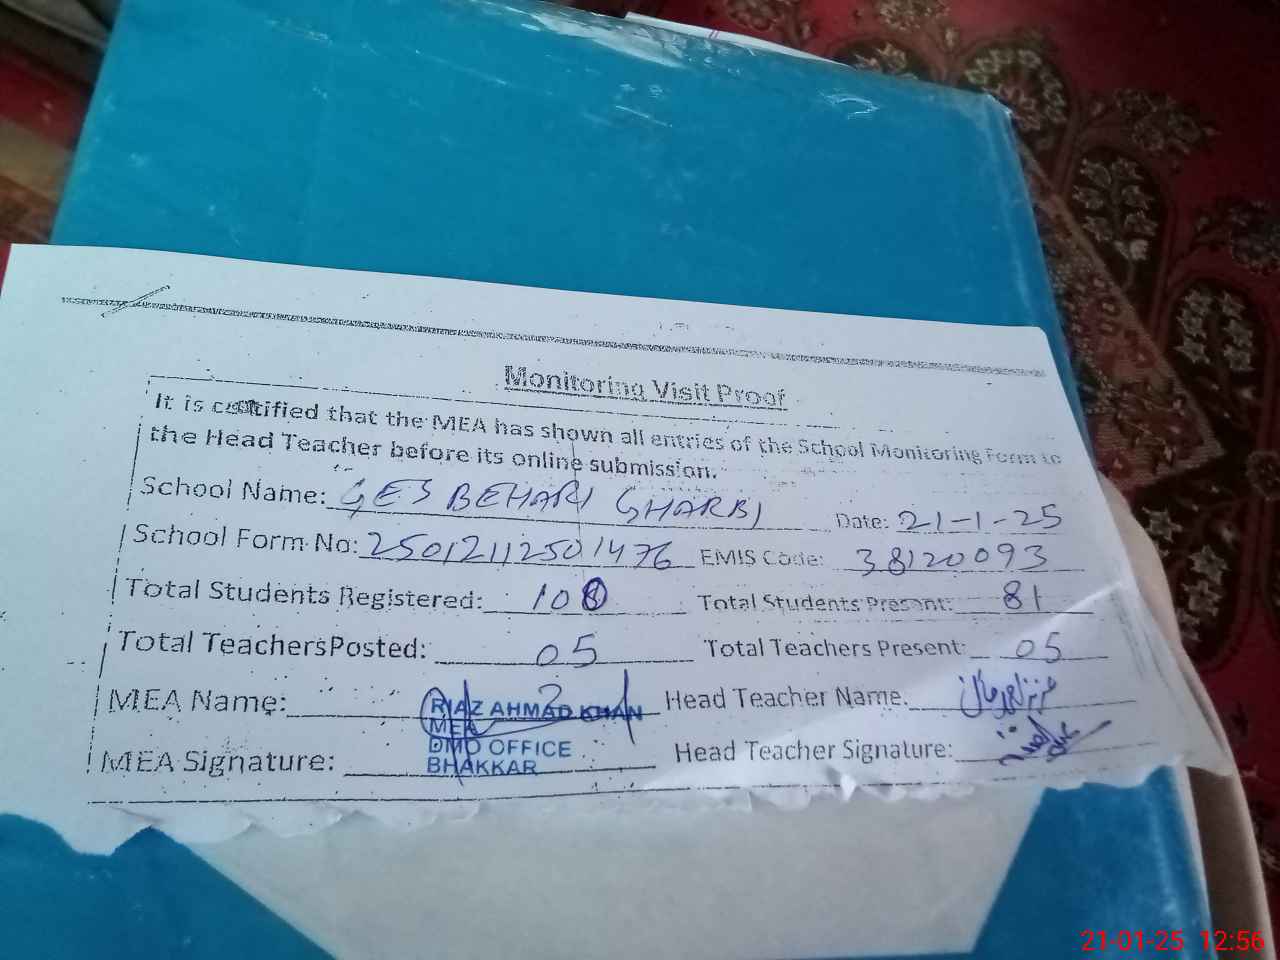 Monitoring Visit Proof
It is certified that the MEA has shown all entries of the School Monitoring Form to
the Head Teacher before its online submission.
School Name: GES BEHARI GHARBI Date: 21-1-25
School Form No: 25012112501476 EMIS Code: 38120093
Total Students Registered: 108 Total Students Present: 81
Total TeachersPosted: 05 Total Teachers Present: 05
MEA Name: RIAZ AHMAD KHAN Head Teacher Name.
MEA
DMO OFFICE
MEA Signature: BHAKKAR Head Teacher Signature:
21-01-25 12:56